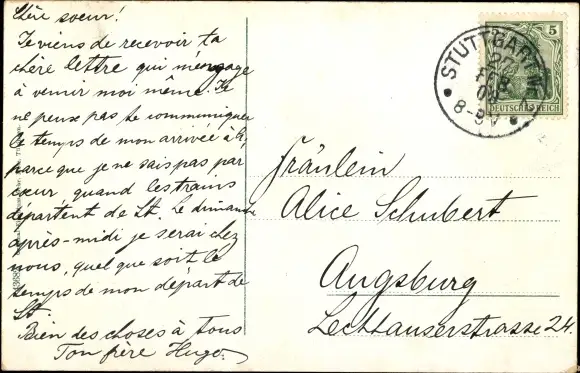 Chère soeur!
Je viens de recevoir ta
chère lettre qui m'engage
à venir moi même. Je
ne peux pas te communiquer
le temps de mon arrivée à A,
parce que je ne sais pas par
cœur quand les trains
départent de St. Le dimanche
après-midi je serai chez
vous, quel que soit le
temps de mon départ de
St.
Bien des choses à tous
Ton frère Hugo.
STUTTGART
27
FEB
08
8-9V
5
DEUTSCHES REICH
Fräulein
Alice Schubert
Augsburg
Lechhauserstrasse 24.